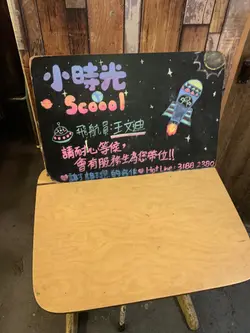 小時光
Scoool
飛航員:王文迪
請耐心等候,
會有服務生為您帶位!!
謝謝您的合作 Hotline:3188 2380